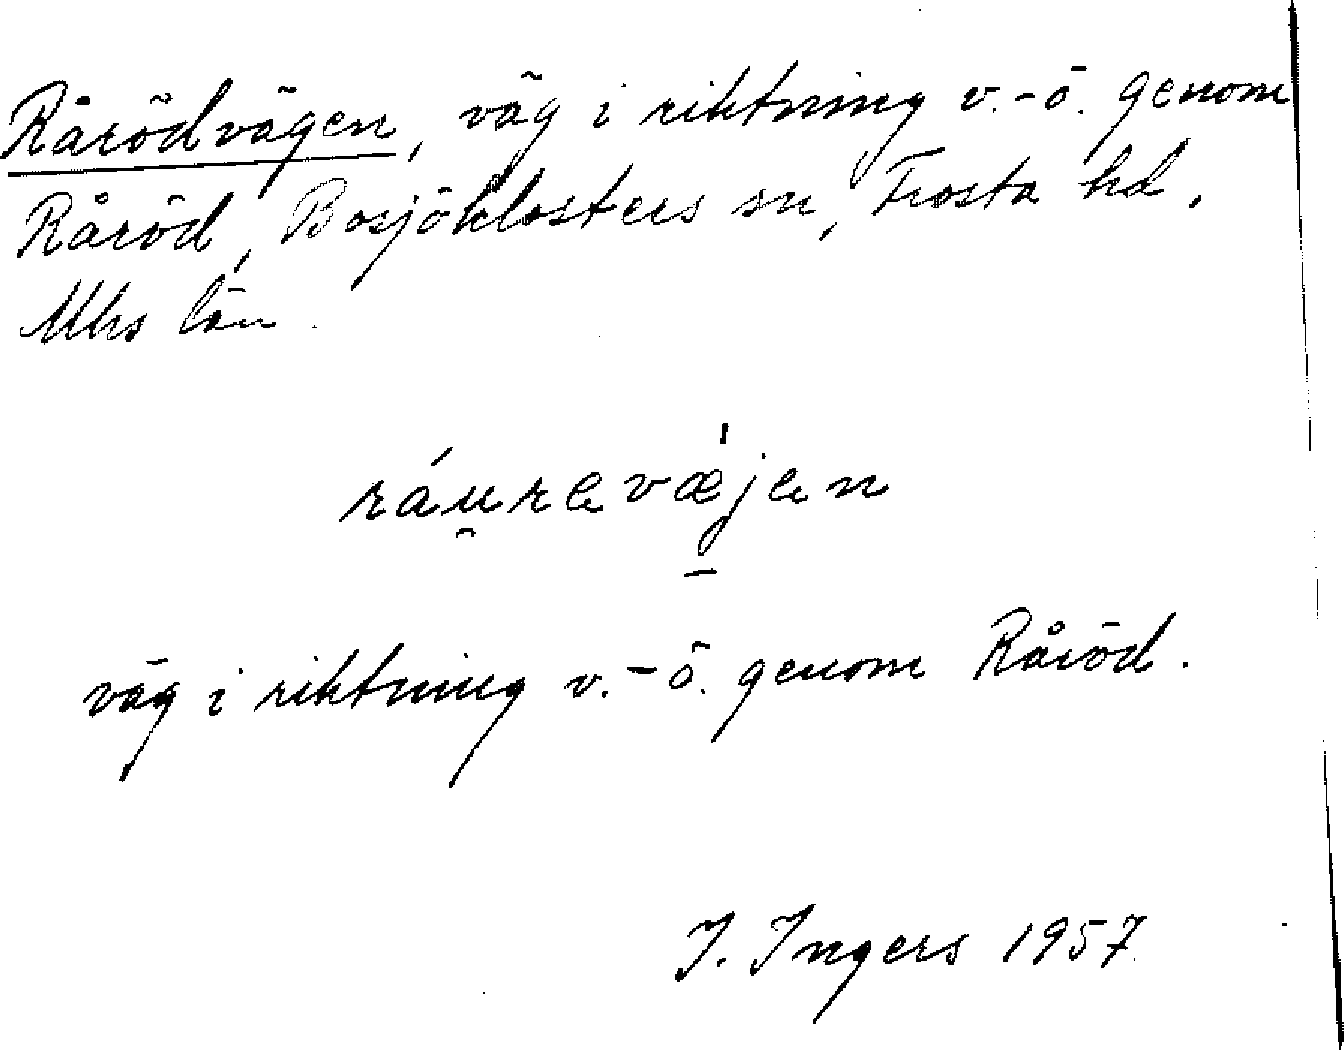 Rårödvägen, väg i riktning v.-ö. genom
Råröd, Bosjöklosters sn, Frosta hd.
Mhs län.
ráu̯rəvæ̱̍jən
väg i riktning v.-ö. genom Råröd.
I. Ingers 1957